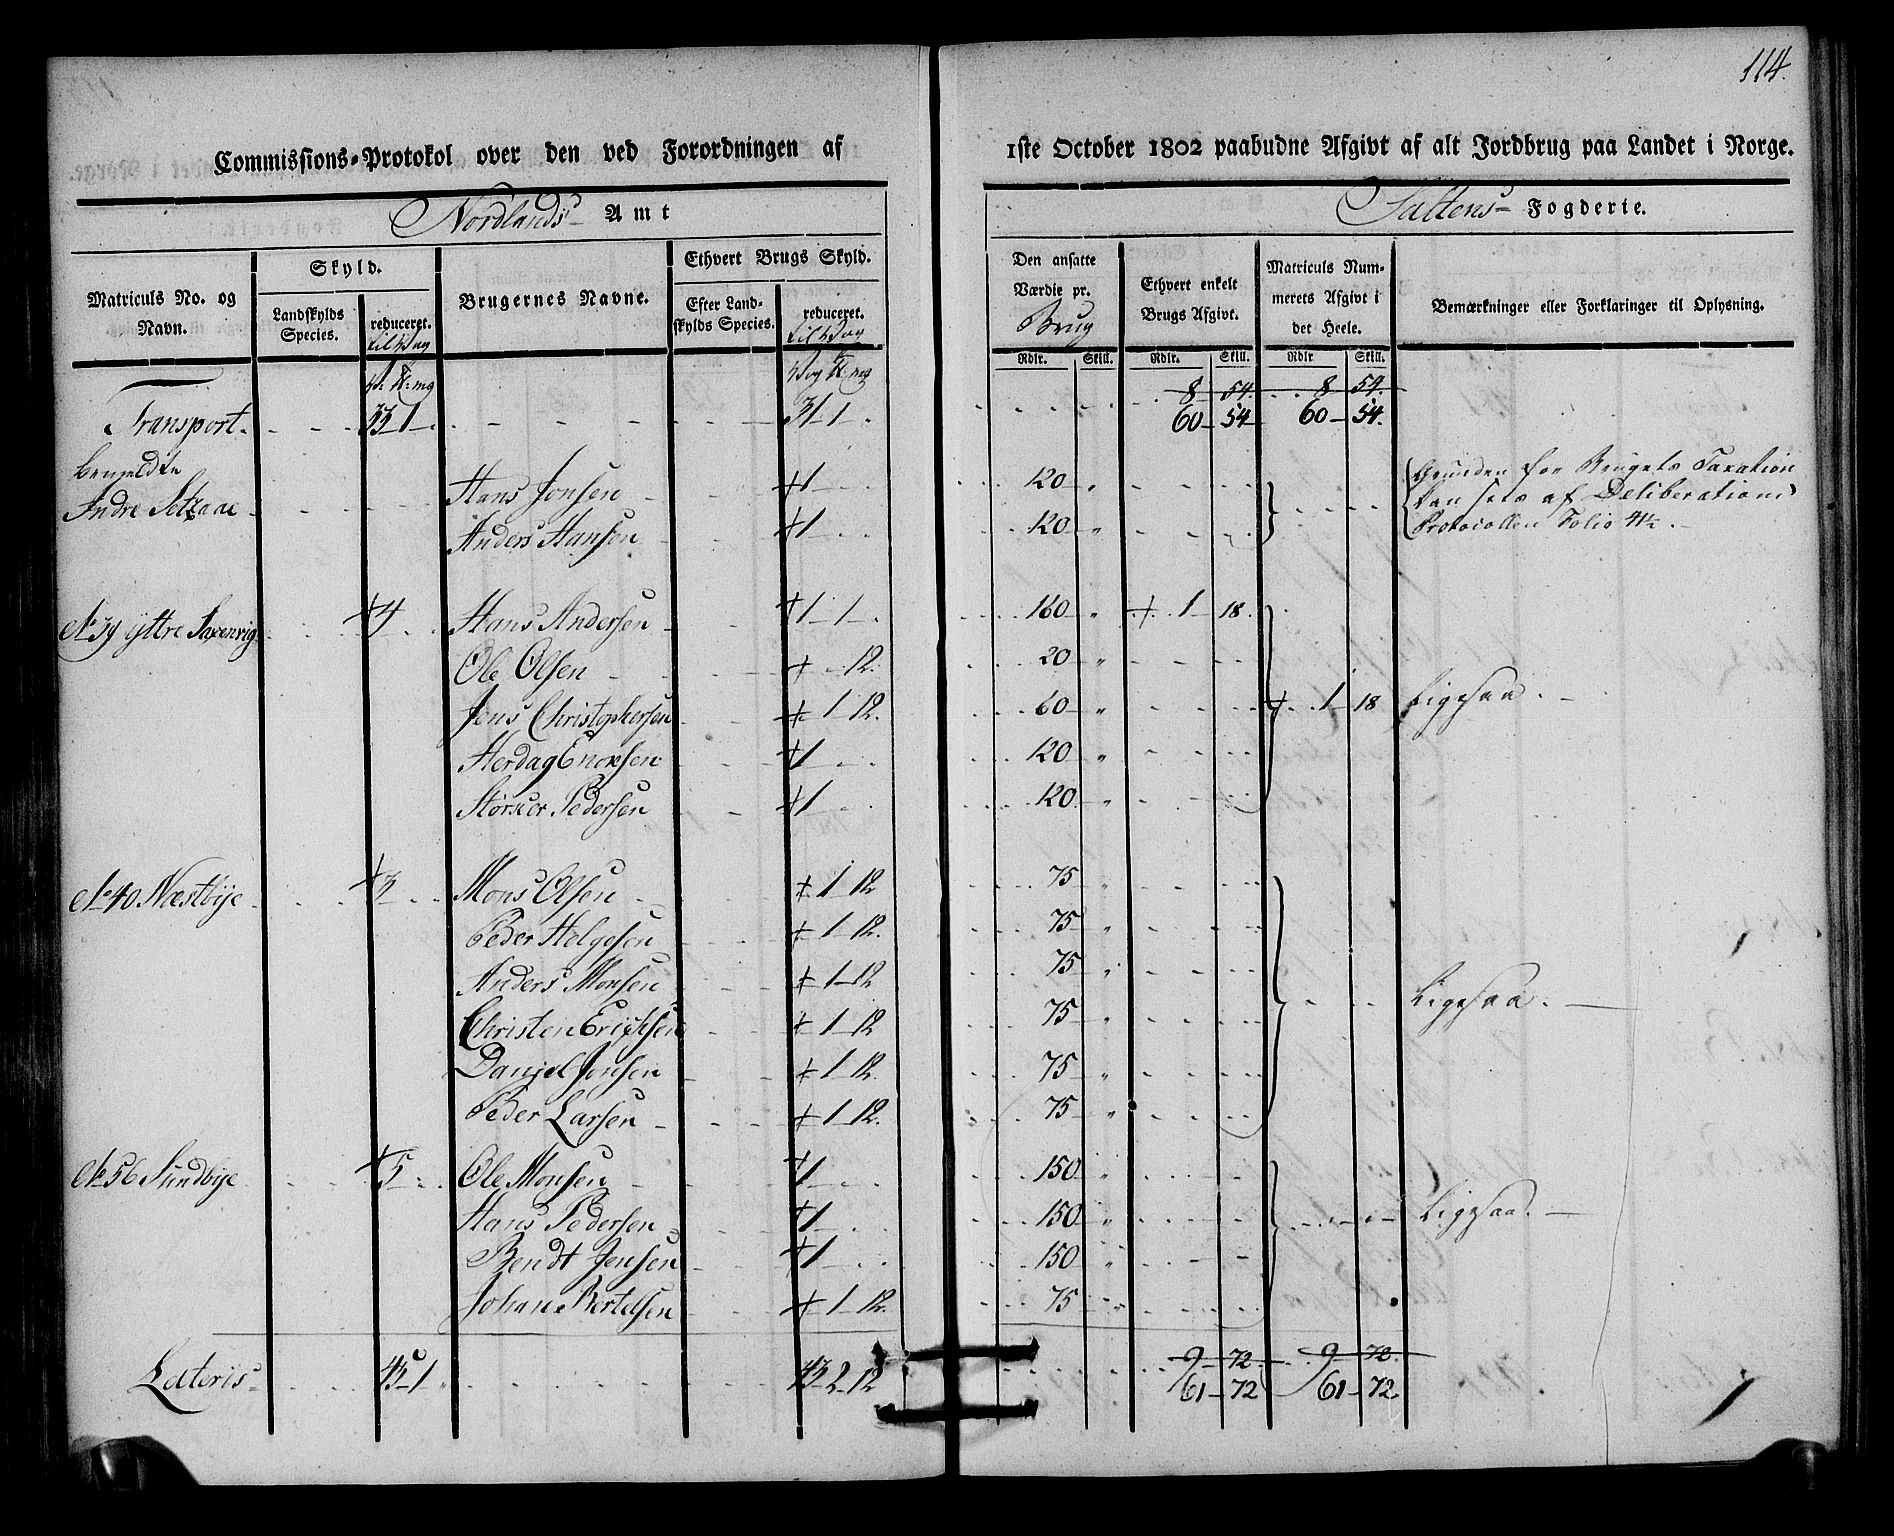 114.
Commissions-Protokol over den ved Forordningen af 1ste October 1802 paabudne Afgivt af alt Jordbrug paa Landet i Norge.
Nordlands Amt Saltens Fogderie.
Matriculs No. og Navn.
Skyld.
Landskylds Species.
reduceret.
Brugernes Navne.
Ethvert Brugs Skyld.
Efter Landskylds Species.
reduceret.
Den ansatte Værdie pr. Brug
Ethvert enkelt Brugs Afgivt.
Matriculs Nummerets Afgivt i det Heele.
Bemærkninger eller Forklaringer til Oplysning.
Rdlr. Skill. Rdlr. Skill. Rdlr Skill.
8 54. 8 54.
Transport 60 54 60 54.
Indre Hans Jonsen 1 120 " Grunden for Brugets Taxation
Anders Hansen 1 120 " kan sees af Deliberations
Protocollen Folio
No 39 Yttre Saxenvig 4 Hans Andersen 1 1 160 " 1 18.
Ole Olsen 12. 20 "
Jens Christophersen 1 12. 60 " 1 18 Ligesaa.
Herdag Enoxsen 1 120 "
Pedersen 1 120 "
No 40 Næstbye 3 Mons Olsen 1 12 75 "
Peder Helgesen 1 12. 75 "
Anders Monsen 1 12 75 "
Christen Erichsen 1 12 75 " Ligesaa.
Daniel Jonsen 1 12. 75 "
Peder Larsen 1 12. 75 "
No 56 Sundbye 5 Ole Monsen 1 150 "
Hans Pedersen 1 150 " Ligesaa.
Bendt Jensen 1 150 "
Johan Bertelsen 1 12. 75 "
9 72 9 72.
Lateris 45 1 43 2 12 61 72 61 72.